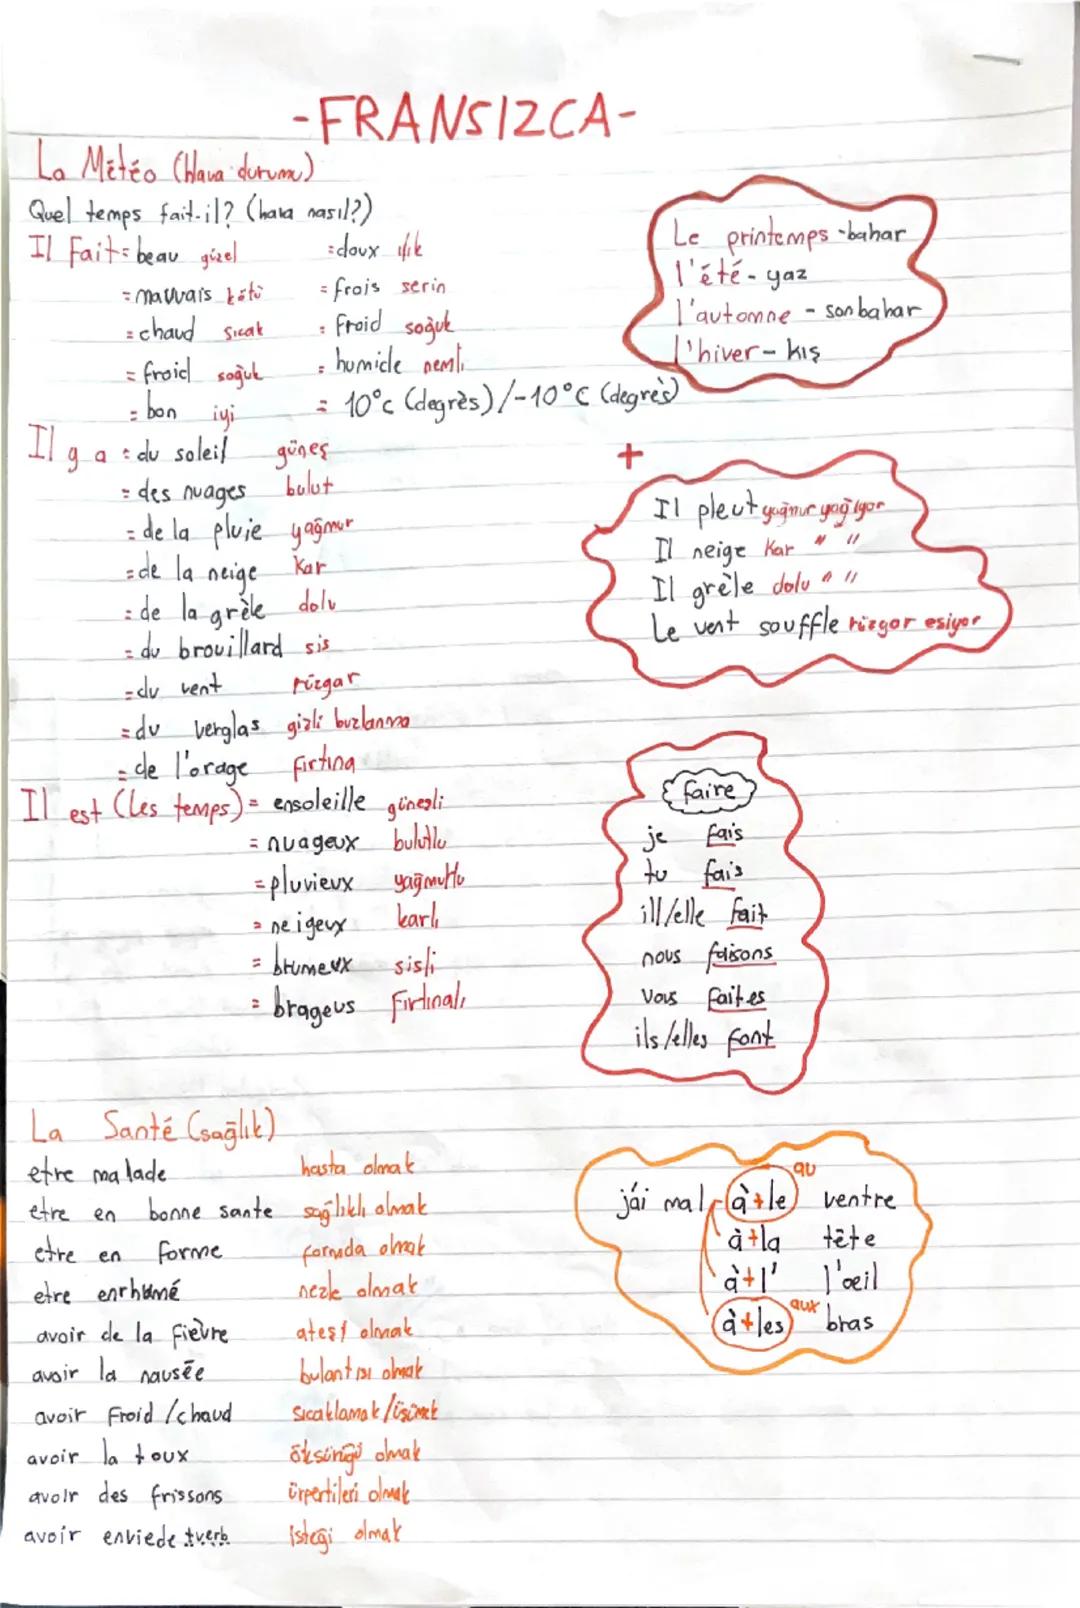 -FRANSIZCA-
La Météo (Hava durumu)
Quel temps fait-il? (hava nasıl?)
Il Fait = beau güzel
= mauvais kötü
= chaud sıcak
= froid soğuk
= bon iyi
= doux ılık
= frais serin
= froid soğuk
= humide nemli
= 10°c (degrès)/-10°C (degrès)
Il y a = du soleil güneş
= des nuages bulut
= de la pluie yağmur
= de la neige Kar
= de la grèle dolu
= du brouillard sis
= du vent rüzgar
= du verglas gizli buzlanma
= de l'orage fırtına
Il est (Les temps) = ensoleille güneşli
= nuageux bulutlu
= pluvieux yağmurlu
= neigeux karlı
= brumeux sisli
= brageus Fırtınalı
Le printemps - bahar
l'été - yaz
l'automne - sonbahar
l'hiver - kış
+
Il pleut yağmur yağıyor
Il neige Kar " "
Il grèle dolu " "
Le vent souffle rüzgar esiyor
faire
je fais
tu fais
ill/elle fait
nous faisons
vous faites
ils/elles font
La Santé (sağlık)
etre malade hasta olmak
etre en bonne sante sağlıklı olmak
etre en forme formda olmak
etre enrhumé nezle olmak
avoir de la fièvre ateşi olmak
avoir la nausēe bulantısı olmak
avoir Froid /chaud sıcaklamak/üşümek
avoir la toux öksürüğü olmak
avoir des frissons ürpertileri olmak
avoir enviede +verb isteği olmak
j'ai mal à+le au ventre
à+la tête
à+l' l'œil
à+les aux bras